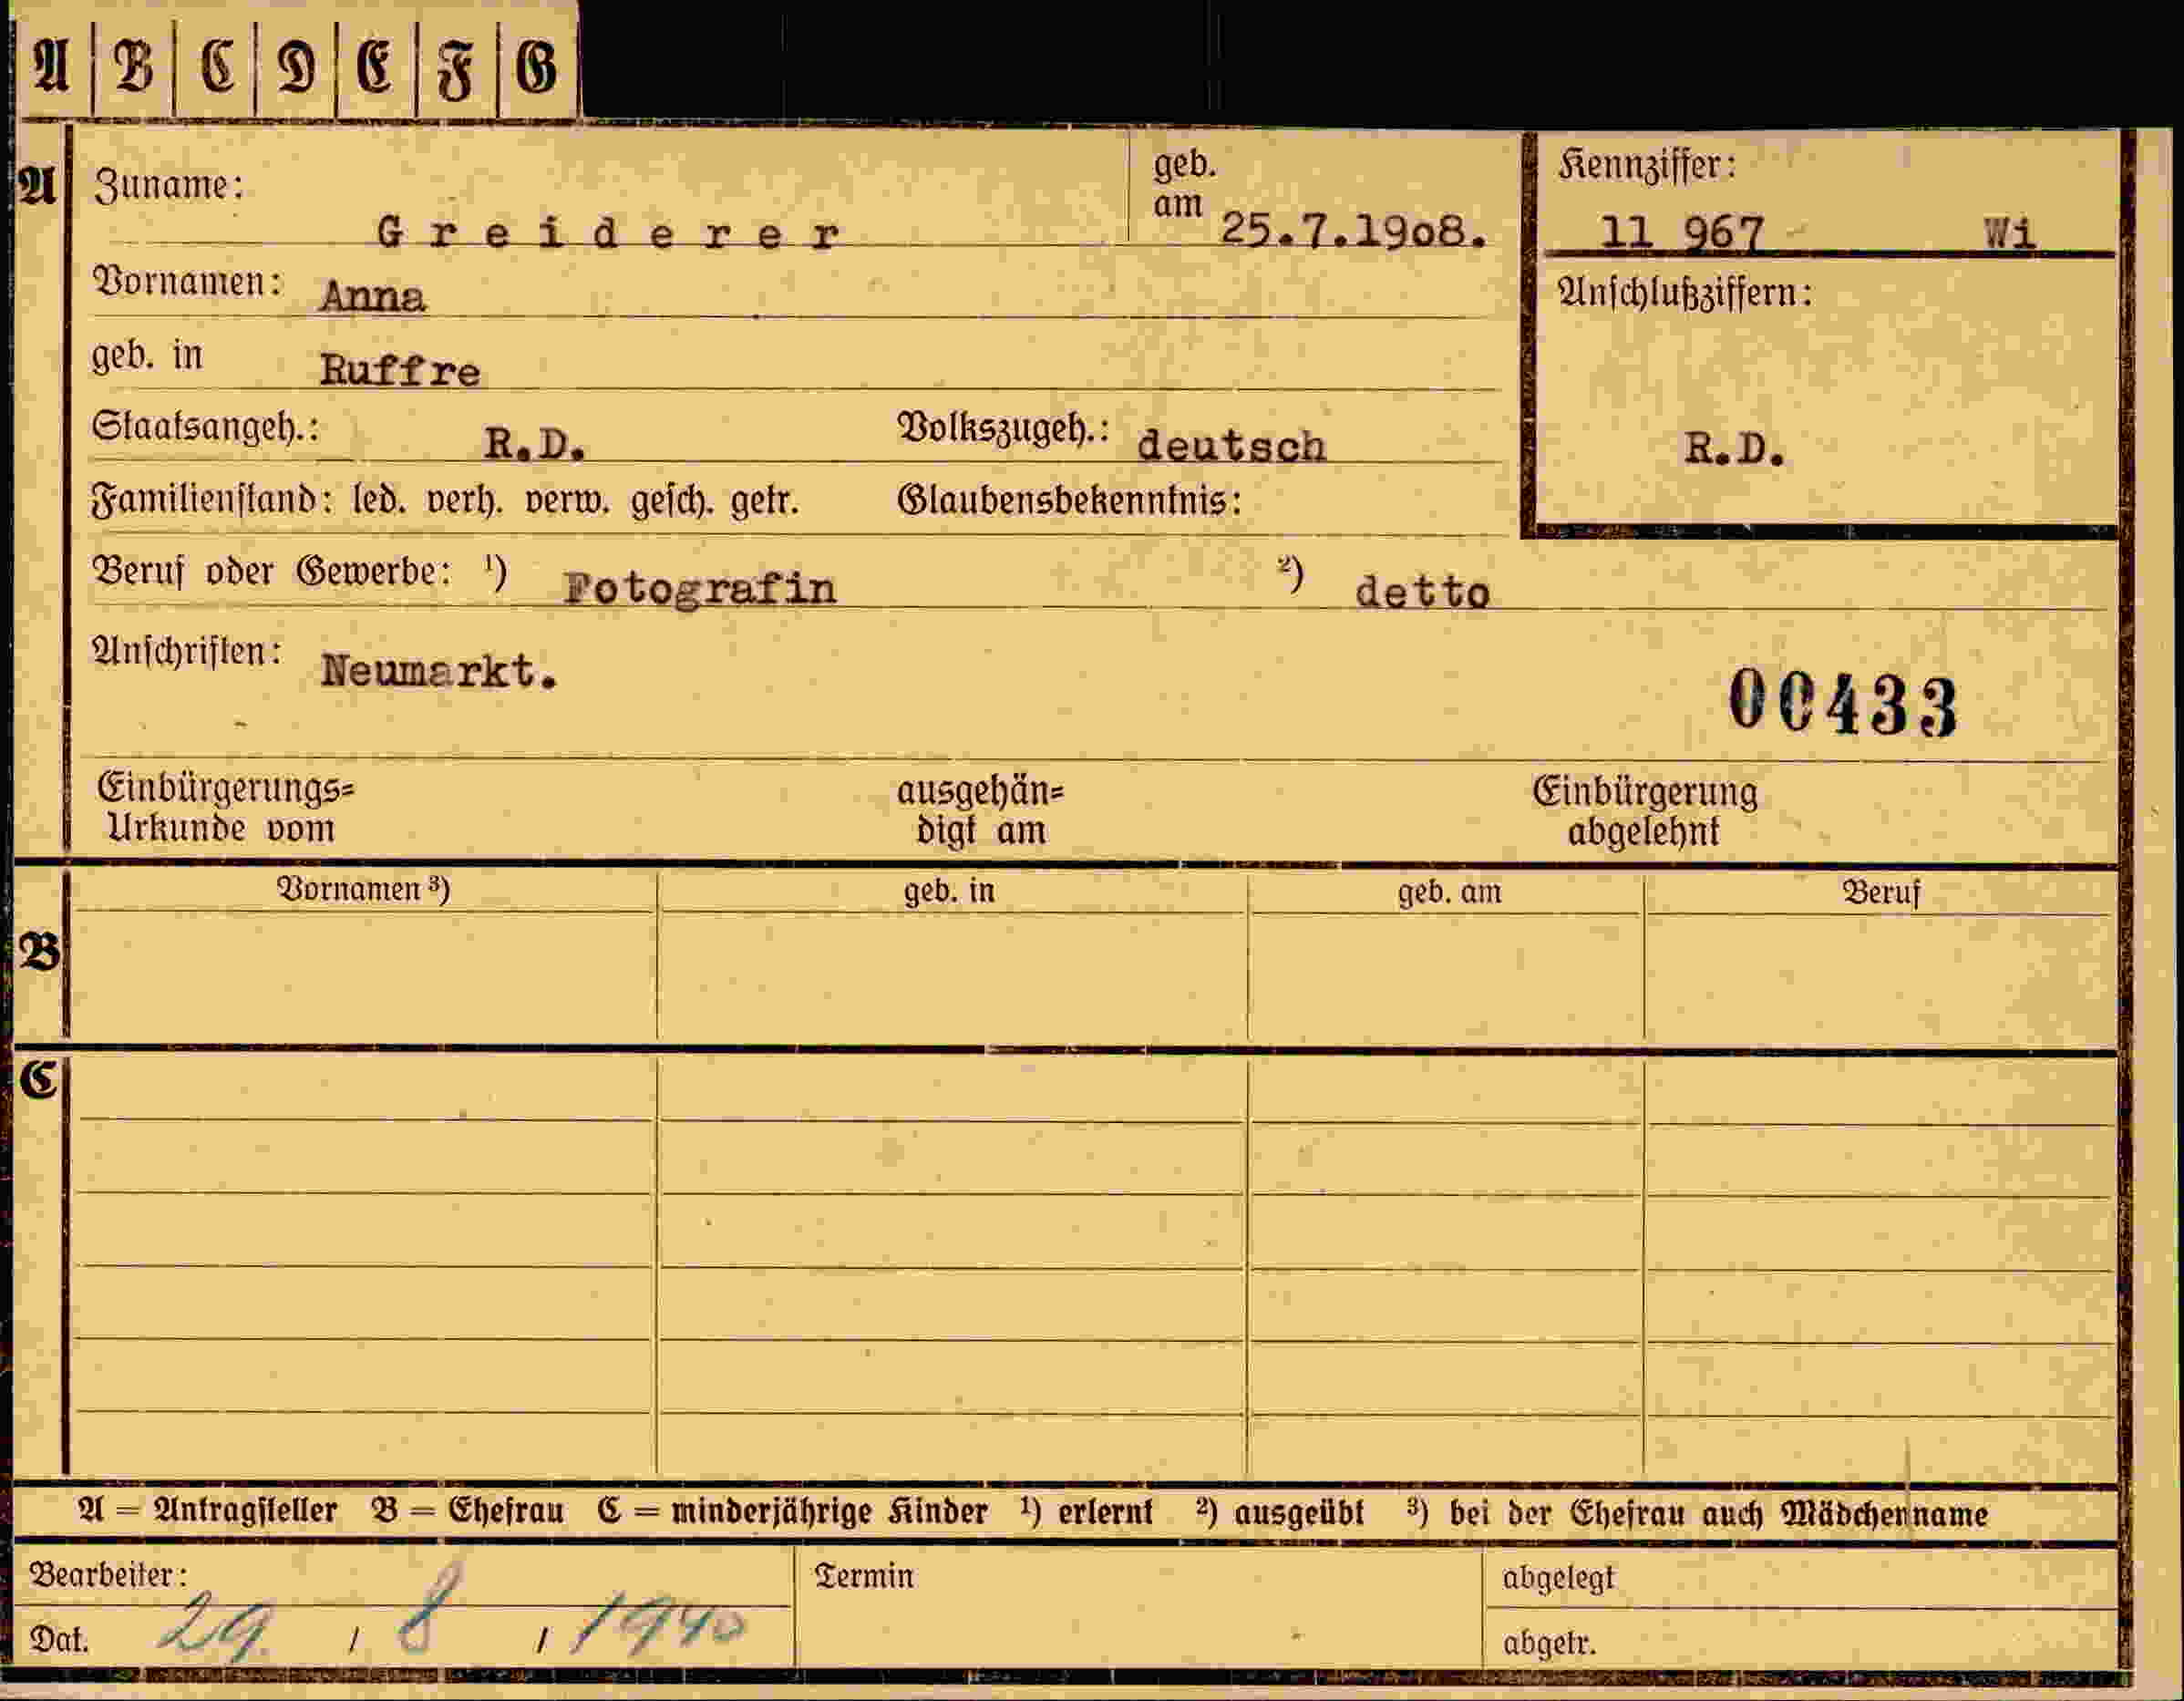 A B C D E F G
A
Zuname: Greiderer geb. am 25.7.1908.
Kennziffer:
11 967 Wi
Vornamen: Anna
Anschlußziffern:
geb. in Ruffre
Staatsangeh.: R.D. Volkszugeh.: deutsch
R.D.
Familienstand: led. verh. verw. gesch. getr. Glaubensbekenntnis:
Beruf oder Gewerbe: ¹) Fotografin ²) detto
Anschriften: Neumarkt.
00433
Einbürgerungs=
Urkunde vom
ausgehän=
digt am
Einbürgerung
abgelehnt
B
Vornamen ³) geb. in geb. am Beruf
C
A = Antragsteller B = Ehefrau C = minderjährige Kinder ¹) erlernt ²) ausgeübt ³) bei der Ehefrau auch Mädchenname
Bearbeiter: Termin abgelegt
Dat. 29. / 8 / 1940 abgetr.